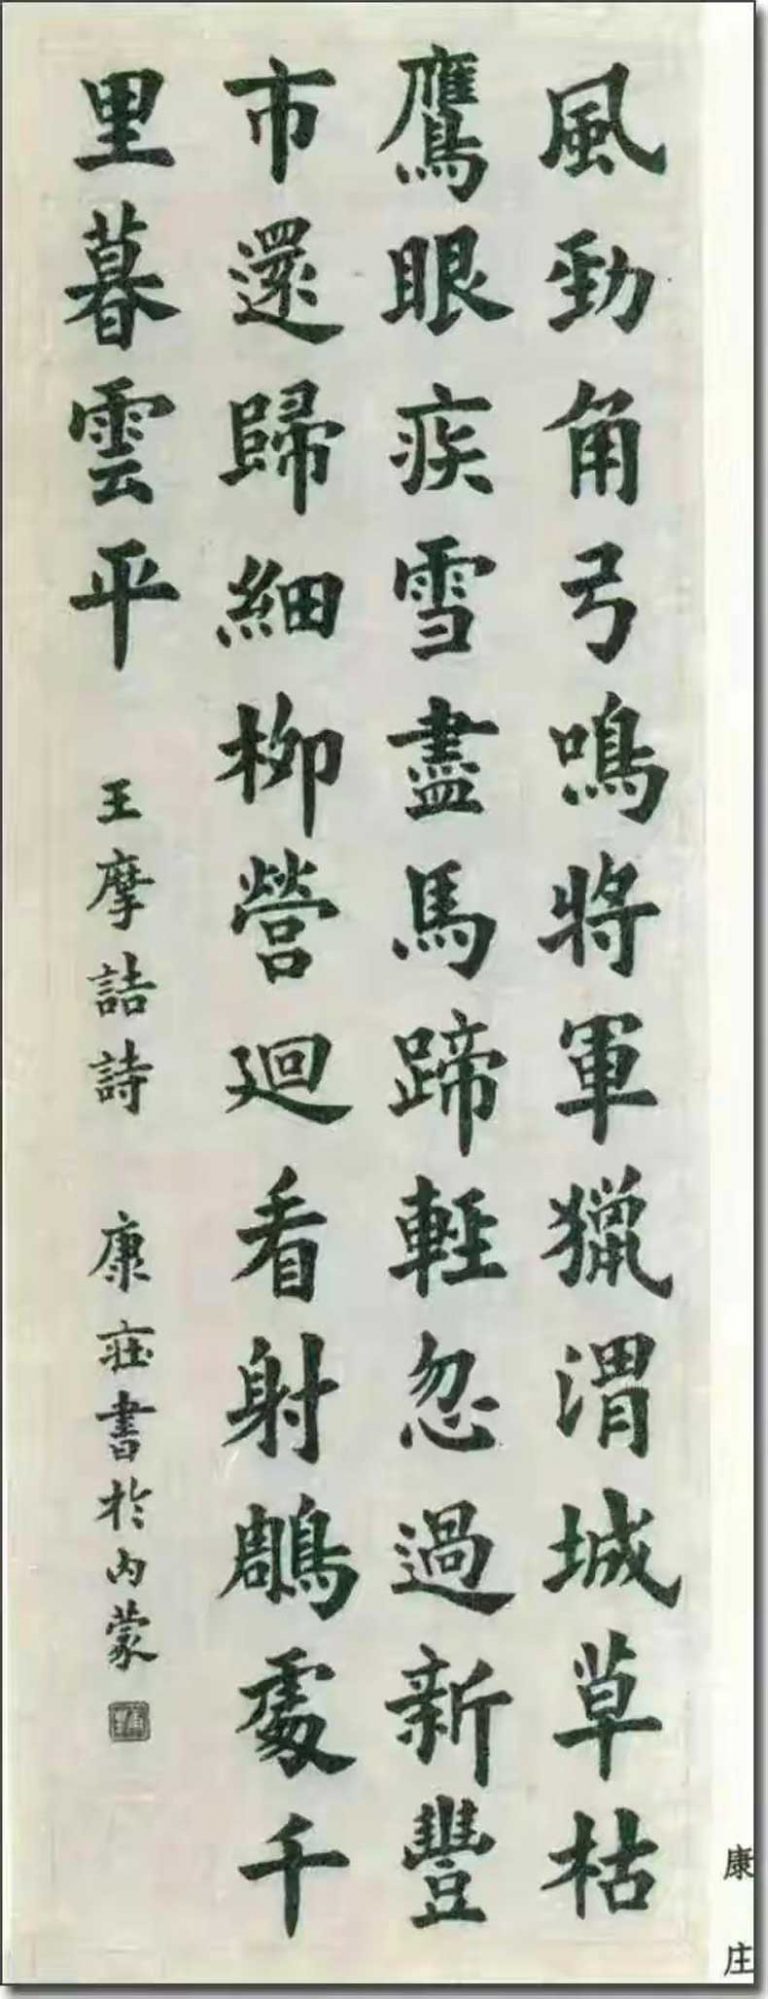 風勁角弓鳴將軍獵渭城草枯
鷹眼疾雪盡馬蹄輕忽過新豐
市還歸細柳營迴看射鵰處千
里暮雲平
王摩詰詩 康莊書於內蒙
康庄